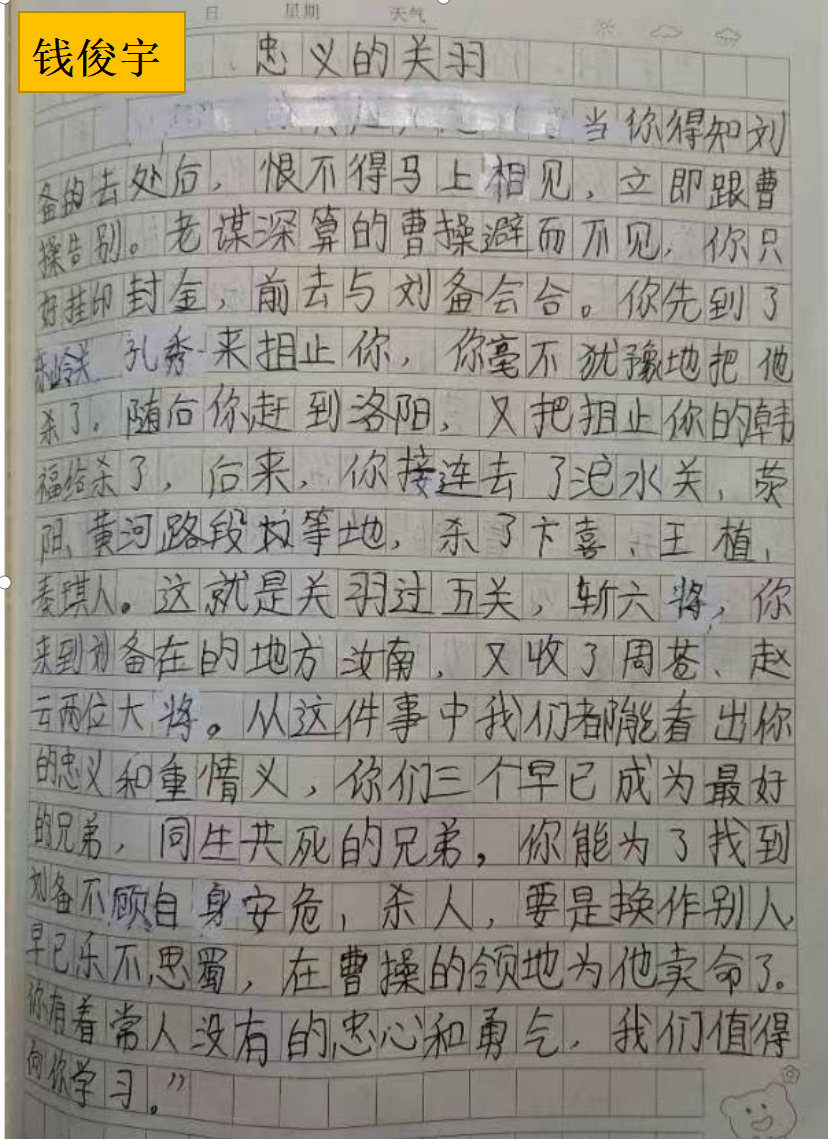 日 星期 天气
钱俊宇
忠义的关羽
当你得知刘
备的去处后，恨不得马上相见，立即跟曹
操告别。老谋深算的曹操避而不见，你只
好挂印封金，前去与刘备会合。你先到了
东岭关 孔秀来阻止你，你毫不犹豫地把他
杀了。随后你赶到洛阳，又把阻止你的韩
福给杀了，后来，你接连去了汜水关、荥
阳、黄河路段 等地，杀了卞喜、王植、
秦琪人。这就是关羽过五关，斩六将，你
来到刘备在的地方汝南，又收了周苍、赵
云两位大将。从这件事中我们都能看出你
的忠义和重情义，你们三个早已成为最好
的兄弟，同生共死的兄弟，你能为了找到
刘备不顾自身安危，杀人，要是换作别人，
早已乐不思蜀，在曹操的领地为他卖命了。
你有着常人没有的忠心和勇气，我们值得
向你学习。”